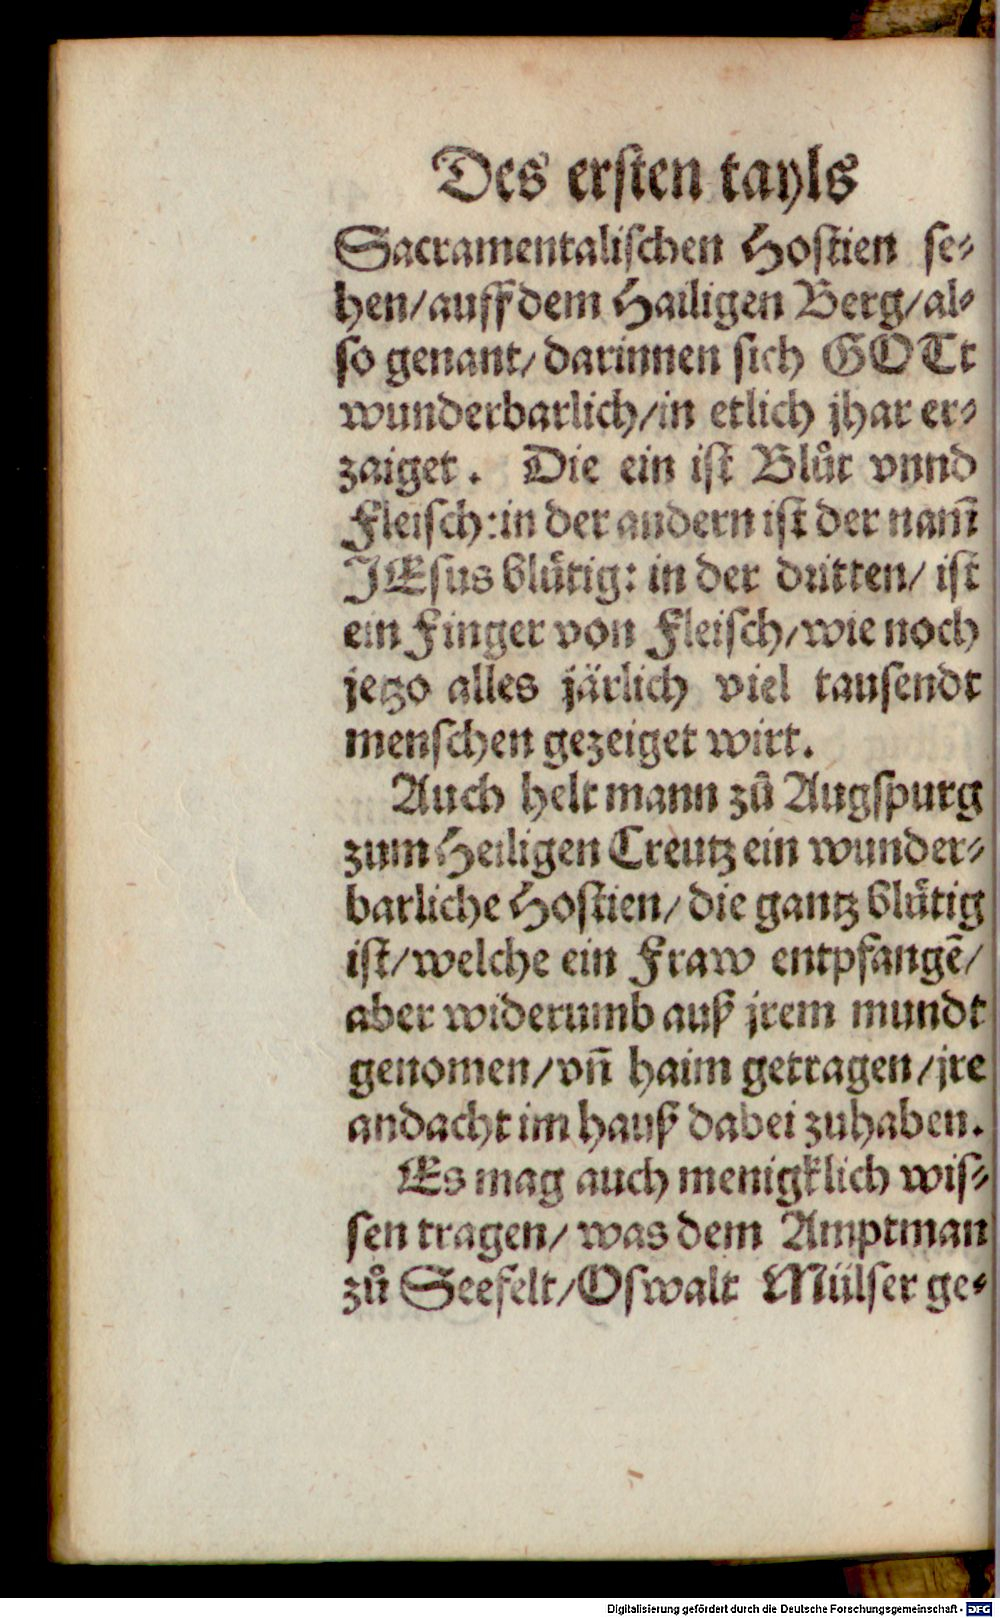 Des ersten tayls
Sacramentalischen Hostien se-
hen/auff dem Hailigen Berg/al-
so genant/darinnen sich GOTt
wunderbarlich/in etlich jhar er-
zaiget. Die ein ist Blůt vnnd
Fleisch:in der andern ist der nam̃
JEsus blůtig: in der dritten/ ist
ein Finger von Fleisch/wie noch
jetzo alles järlich viel tausendt
menschen gezeiget wirt.
Auch helt mann zů Augspurg
zum Heiligen Creutz ein wunder-
barliche Hostien/die gantz blůtig
ist/welche ein Fraw entpfangẽ/
aber widerumb auß jrem mundt
genomen/vñ haim getragen/jre
andacht im hauß dabei zuhaben.
Es mag auch menigklich wis-
sen tragen/was dem Amptman
zů Seefelt/Oswalt Mülser ge-
Digitalisierung gefördert durch die Deutsche Forschungsgemeinschaft - DFG